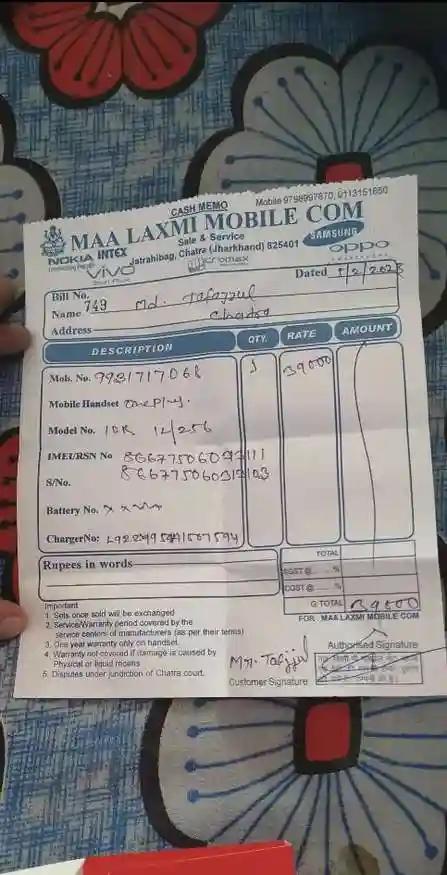 CASH MEMO
Mobile 9798997870, 0113151650
MAA LAXMI MOBILE COM
Sale & Service
NOKIA INTEX
SAMSUNG
Jatrahibag, Chatra (Jharkhand) 825401
vivo
micromax
oppo
Dated 5/2/2023
Bill No. 749
Name Md. Tafazzul
Address Chatra
DESCRIPTION QTY. RATE AMOUNT
Mob. No. 9931717068 1 39000
Mobile Handset Oneplus.
Model No. 10R 12/256
IMEI/RSN No
S/No.
Battery No. x x
ChargerNo:
TOTAL
Rupees in words
SGST @ %
CGST @ %
G.TOTAL 39000
FOR : MAA LAXMI MOBILE COM
Important
1. Sets once sold will be exchanged
2. Service/Warranty period covered by the
service centers of manufacturers (as per their terms)
3. One year warranty only on handset.
4. Warranty not covered if damage is caused by
Physical or liquid means
5. Disputes under jundriction of Chatra court.
Authorised Signature
Customer Signature